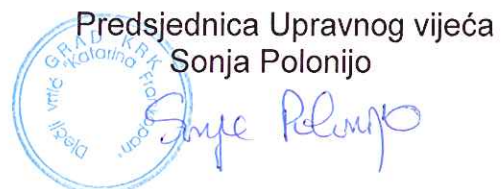 Predsjednica Upravnog vijeća
Sonja Polonijo
GRAD KRK
Dječji vrtić "Katarina Frankopan"
Sonja Polonijo